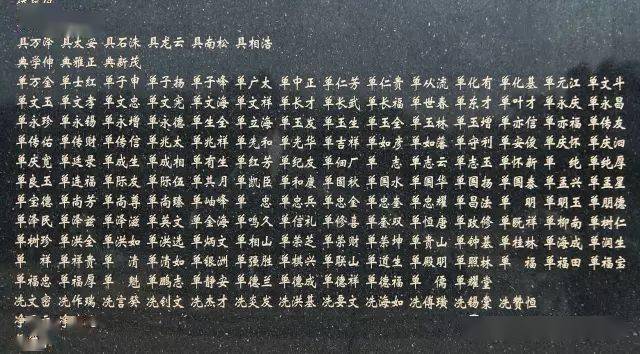 具万泽 具太安 具石洙 具龙云 具南松 具相浩
典学仲 典雅正 典新茂
单万金 单士红 单子申 单子扬 单子峰 单广太 单中正 单仁芳 单仁贵 单从流 单化有 单化基 单元江 单文斗
单文玉 单文孝 单文忠 单文宪 单文海 单文祥 单长才 单长武 单长福 单世春 单东才 单叶才 单永庆 单永盛
单永珍 单永锡 单永增 单永德 单生全 单立海 单玉发 单玉生 单玉全 单玉林 单玉增 单亦信 单亦福 单传友
单传佑 单传财 单传信 单兆太 单兆祥 单先和 单光华 单吉祥 单如彦 单如藩 单守利 单安俊 单怀庆 单庆洄
单庆宽 单廷景 单成生 单成相 单有生 单红芳 单纪友 单佃秋 单志 单志云 单志玉 单怀新 单纯 单纯厚
单良玉 单连福 单际友 单际伍 单其月 单凯臣 单和康 单国权 单国水 单国华 单国扬 单国泰 单孟兴 单孟星
单宝德 单尚芳 单尚尊 单尚臻 单屿峰 单忠 单忠兵 单忠祥 单忠奎 单忠耀 单昌法 单明 单明玉 单朋德
单泽民 单泽兹 单泽滋 单英文 单金海 单鸣久 单信礼 单修喜 单奎双 单恒唐 单政修 单明祥 单柳南 单树仁
单树珍 单洪全 单洪如 单洪选 单炳文 单相山 单荣芝 单荣财 单荣坤 单贵殿 单钟基 单阮桂 单海成 单润生
单祥 单祥贵 单清 单清如 单银洲 单强胜 单棋兴 单联山 单道生 单鹏明 单照林 单福林 单福田 单福宝
单福忠 单福厚 单魁 单鹏志 单静安 单德兰 单德成 单德祥 单德福 单儒 单耀堂
冼文密 冼作瑞 冼言葵 冼剑文 冼杰才 冼炎发 冼洪基 冼要文 冼海如 冼傅璜 冼锡棠 冼赞恒